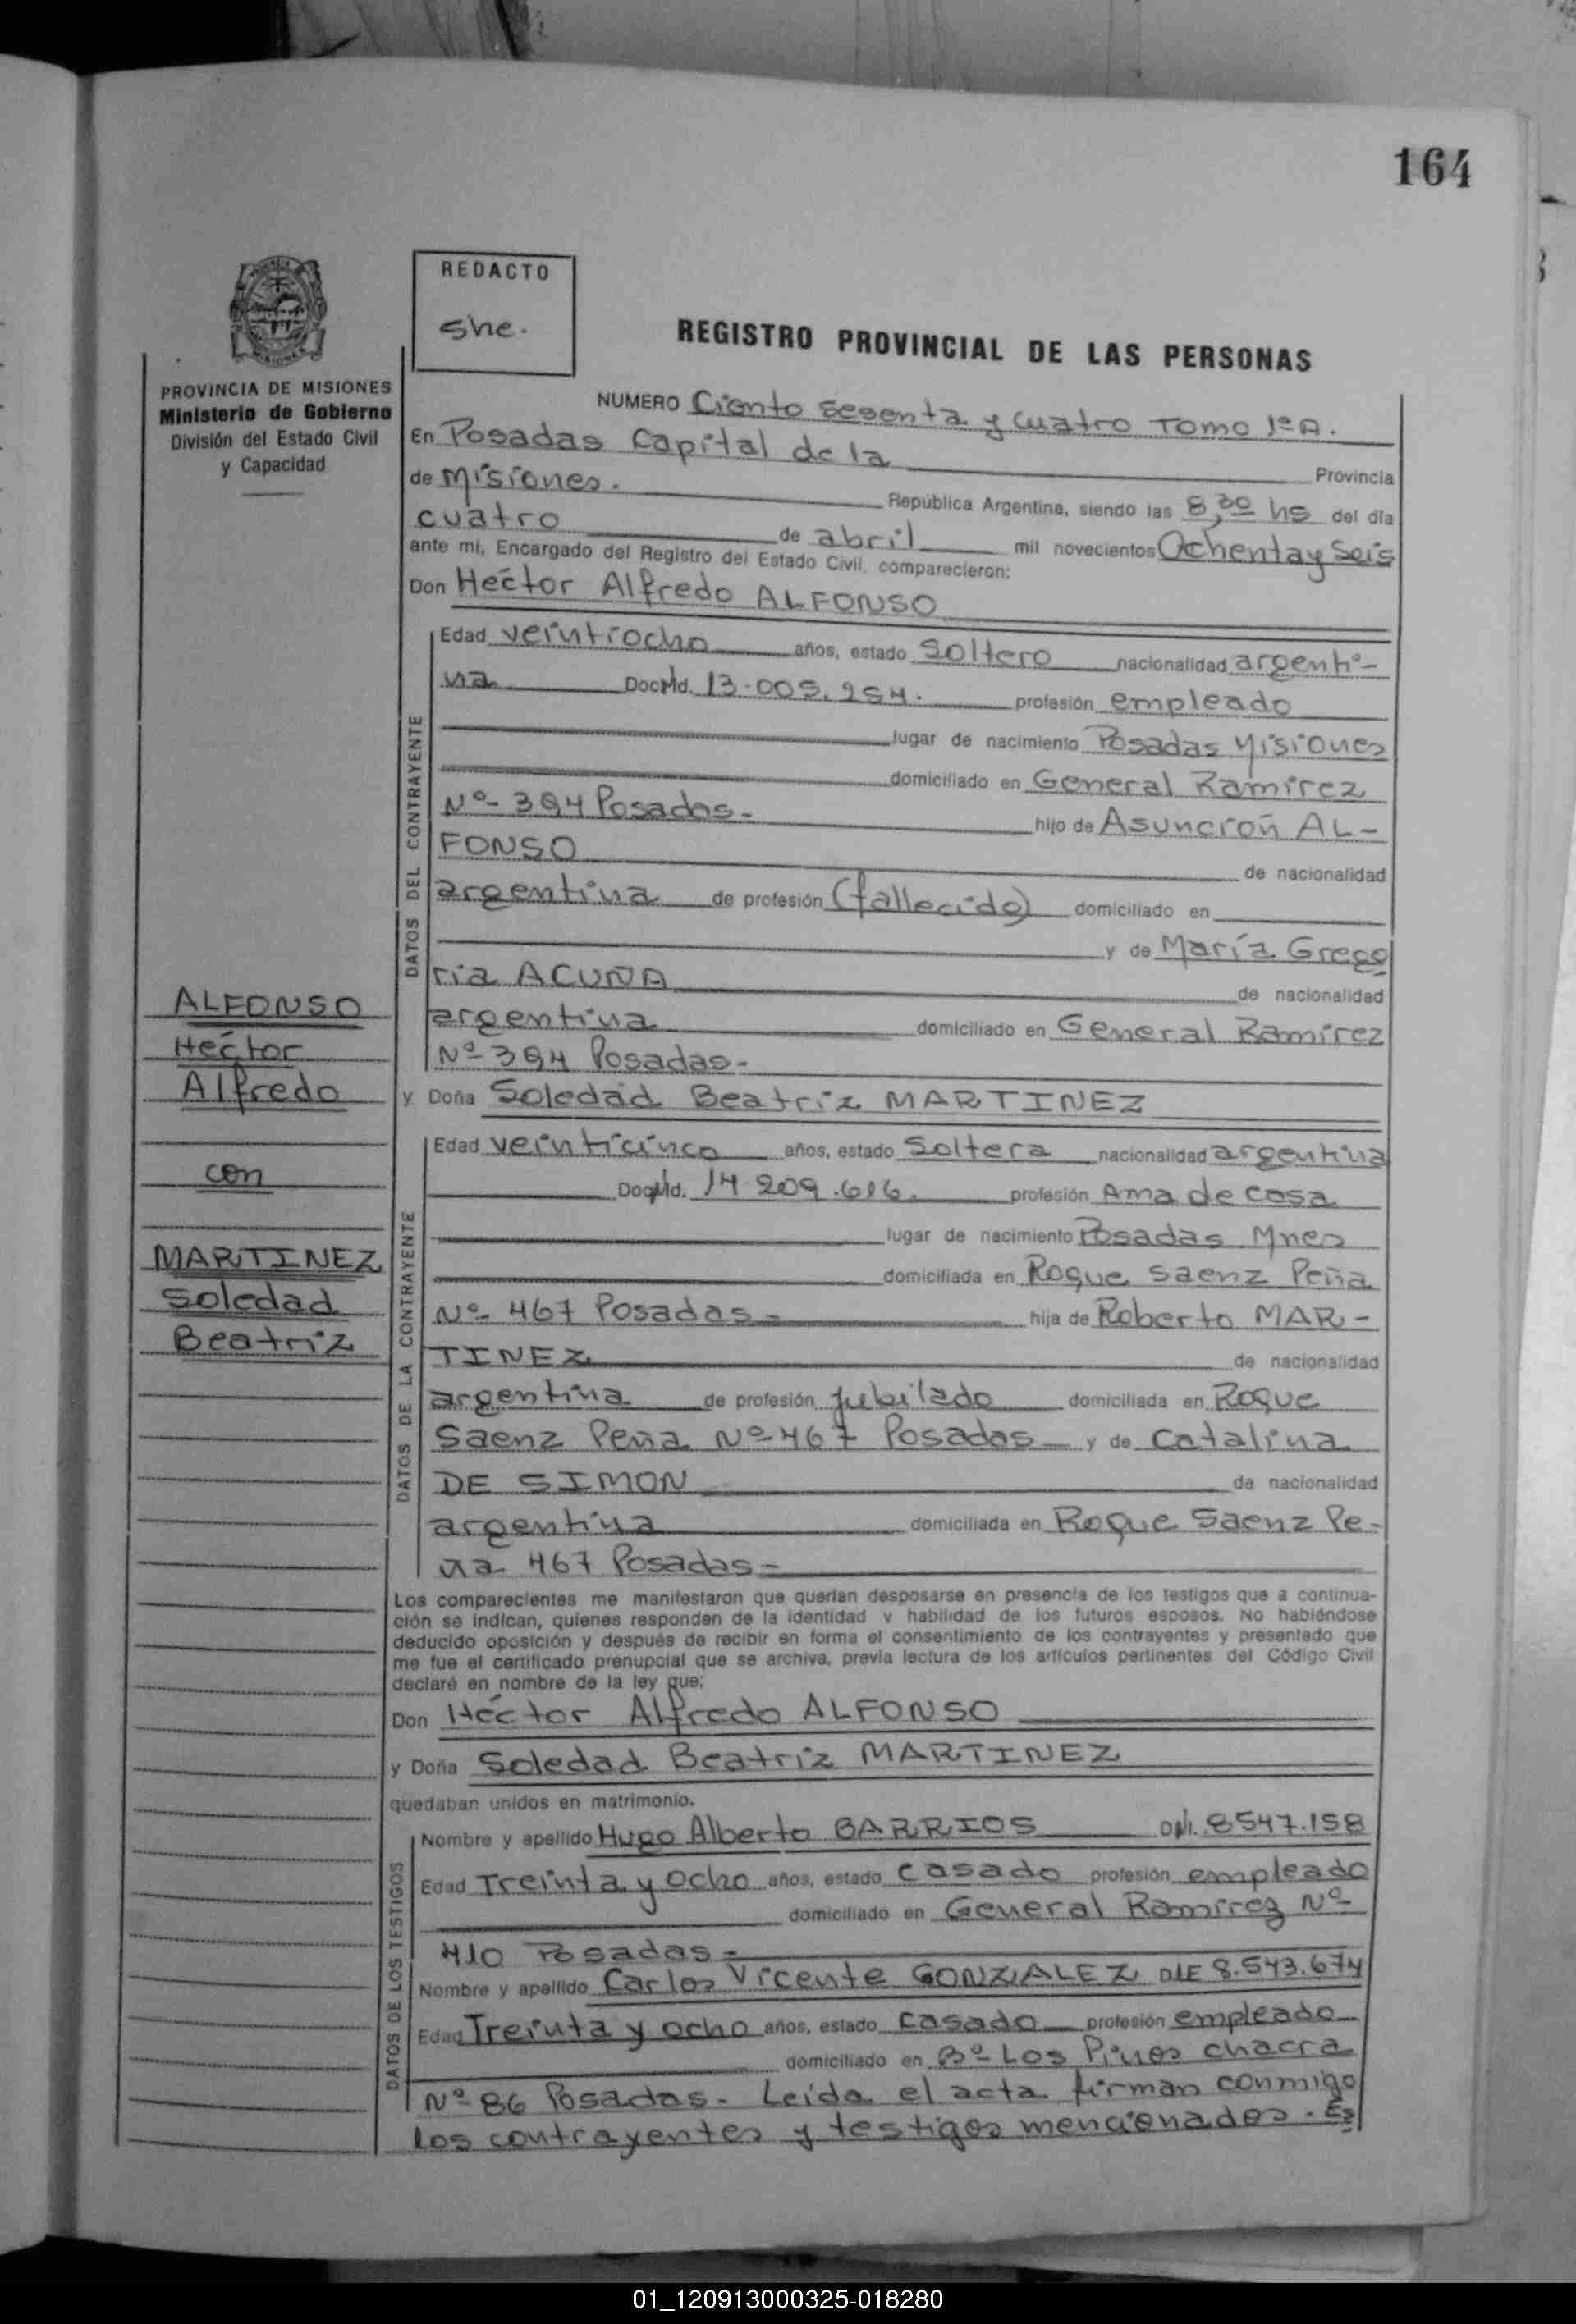 164
REDACTO
She.
REGISTRO PROVINCIAL DE LAS PERSONAS
PROVINCIA DE MISIONES
Ministerio de Gobierno
División del Estado Civil
y Capacidad
NUMERO Ciento sesenta y cuatro Tomo 1º A.
En Posadas Capital de la Provincia
de Misiones. República Argentina, siendo las 8,30 hs del día
cuatro de abril mil novecientos Ochenta y Seis
ante mí, Encargado del Registro del Estado Civil, comparecieron:
Don Héctor Alfredo ALFONSO
DATOS DEL CONTRAYENTE
Edad veintiocho años, estado Soltero nacionalidad argenti-
na Doc. Nd. 13.005.254. profesión empleado
lugar de nacimiento Posadas Misiones
domiciliado en General Ramirez
Nº 394 Posadas- hijo de Asunción AL-
FONSO de nacionalidad
argentina de profesión (fallecido) domiciliado en
y de María Grego
ria ACUÑA de nacionalidad
argentina domiciliado en General Ramírez
Nº 394 Posadas-
y Doña Soledad Beatriz MARTINEZ
ALFONSO
Héctor
Alfredo
con
MARTINEZ
Soledad
Beatriz
DATOS DE LA CONTRAYENTE
Edad veinticinco años, estado Soltera nacionalidad argentina
Doc. Nd. 14.209.616. profesión Ama de casa
lugar de nacimiento Posadas Mnes
domiciliada en Roque Saenz Peña
Nº 467 Posadas- hija de Roberto MAR-
TINEZ de nacionalidad
argentina de profesión jubilado domiciliada en Roque
Saenz Peña Nº 467 Posadas y de Catalina
DE SIMON de nacionalidad
argentina domiciliada en Roque Saenz Pe-
ña 467 Posadas-
Los comparecientes me manifestaron que querían desposarse en presencia de los testigos que a continua-
ción se indican, quienes responden de la identidad y habilidad de los futuros esposos. No habiéndose
deducido oposición y después de recibir en forma el consentimiento de los contrayentes y presentado que
me fue el certificado prenupcial que se archiva, previa lectura de los artículos pertinentes del Código Civil
declaré en nombre de la ley que:
Don Héctor Alfredo ALFONSO
y Doña Soledad Beatriz MARTINEZ
quedaban unidos en matrimonio.
DATOS DE LOS TESTIGOS
Nombre y apellido Hugo Alberto BARRIOS DNI. 8547.158
Edad Treinta y ocho años, estado casado profesión empleado
domiciliado en General Ramirez Nº
410 Posadas-
Nombre y apellido Carlos Vicente GONZALEZ DLE 8.543.674
Edad Treinta y ocho años, estado casado profesión empleado
domiciliado en Bº Los Pinos chacra
Nº 86 Posadas- Leída el acta firman conmigo
los contrayentes y testigos mencionados. Es
01_120913000325-018280